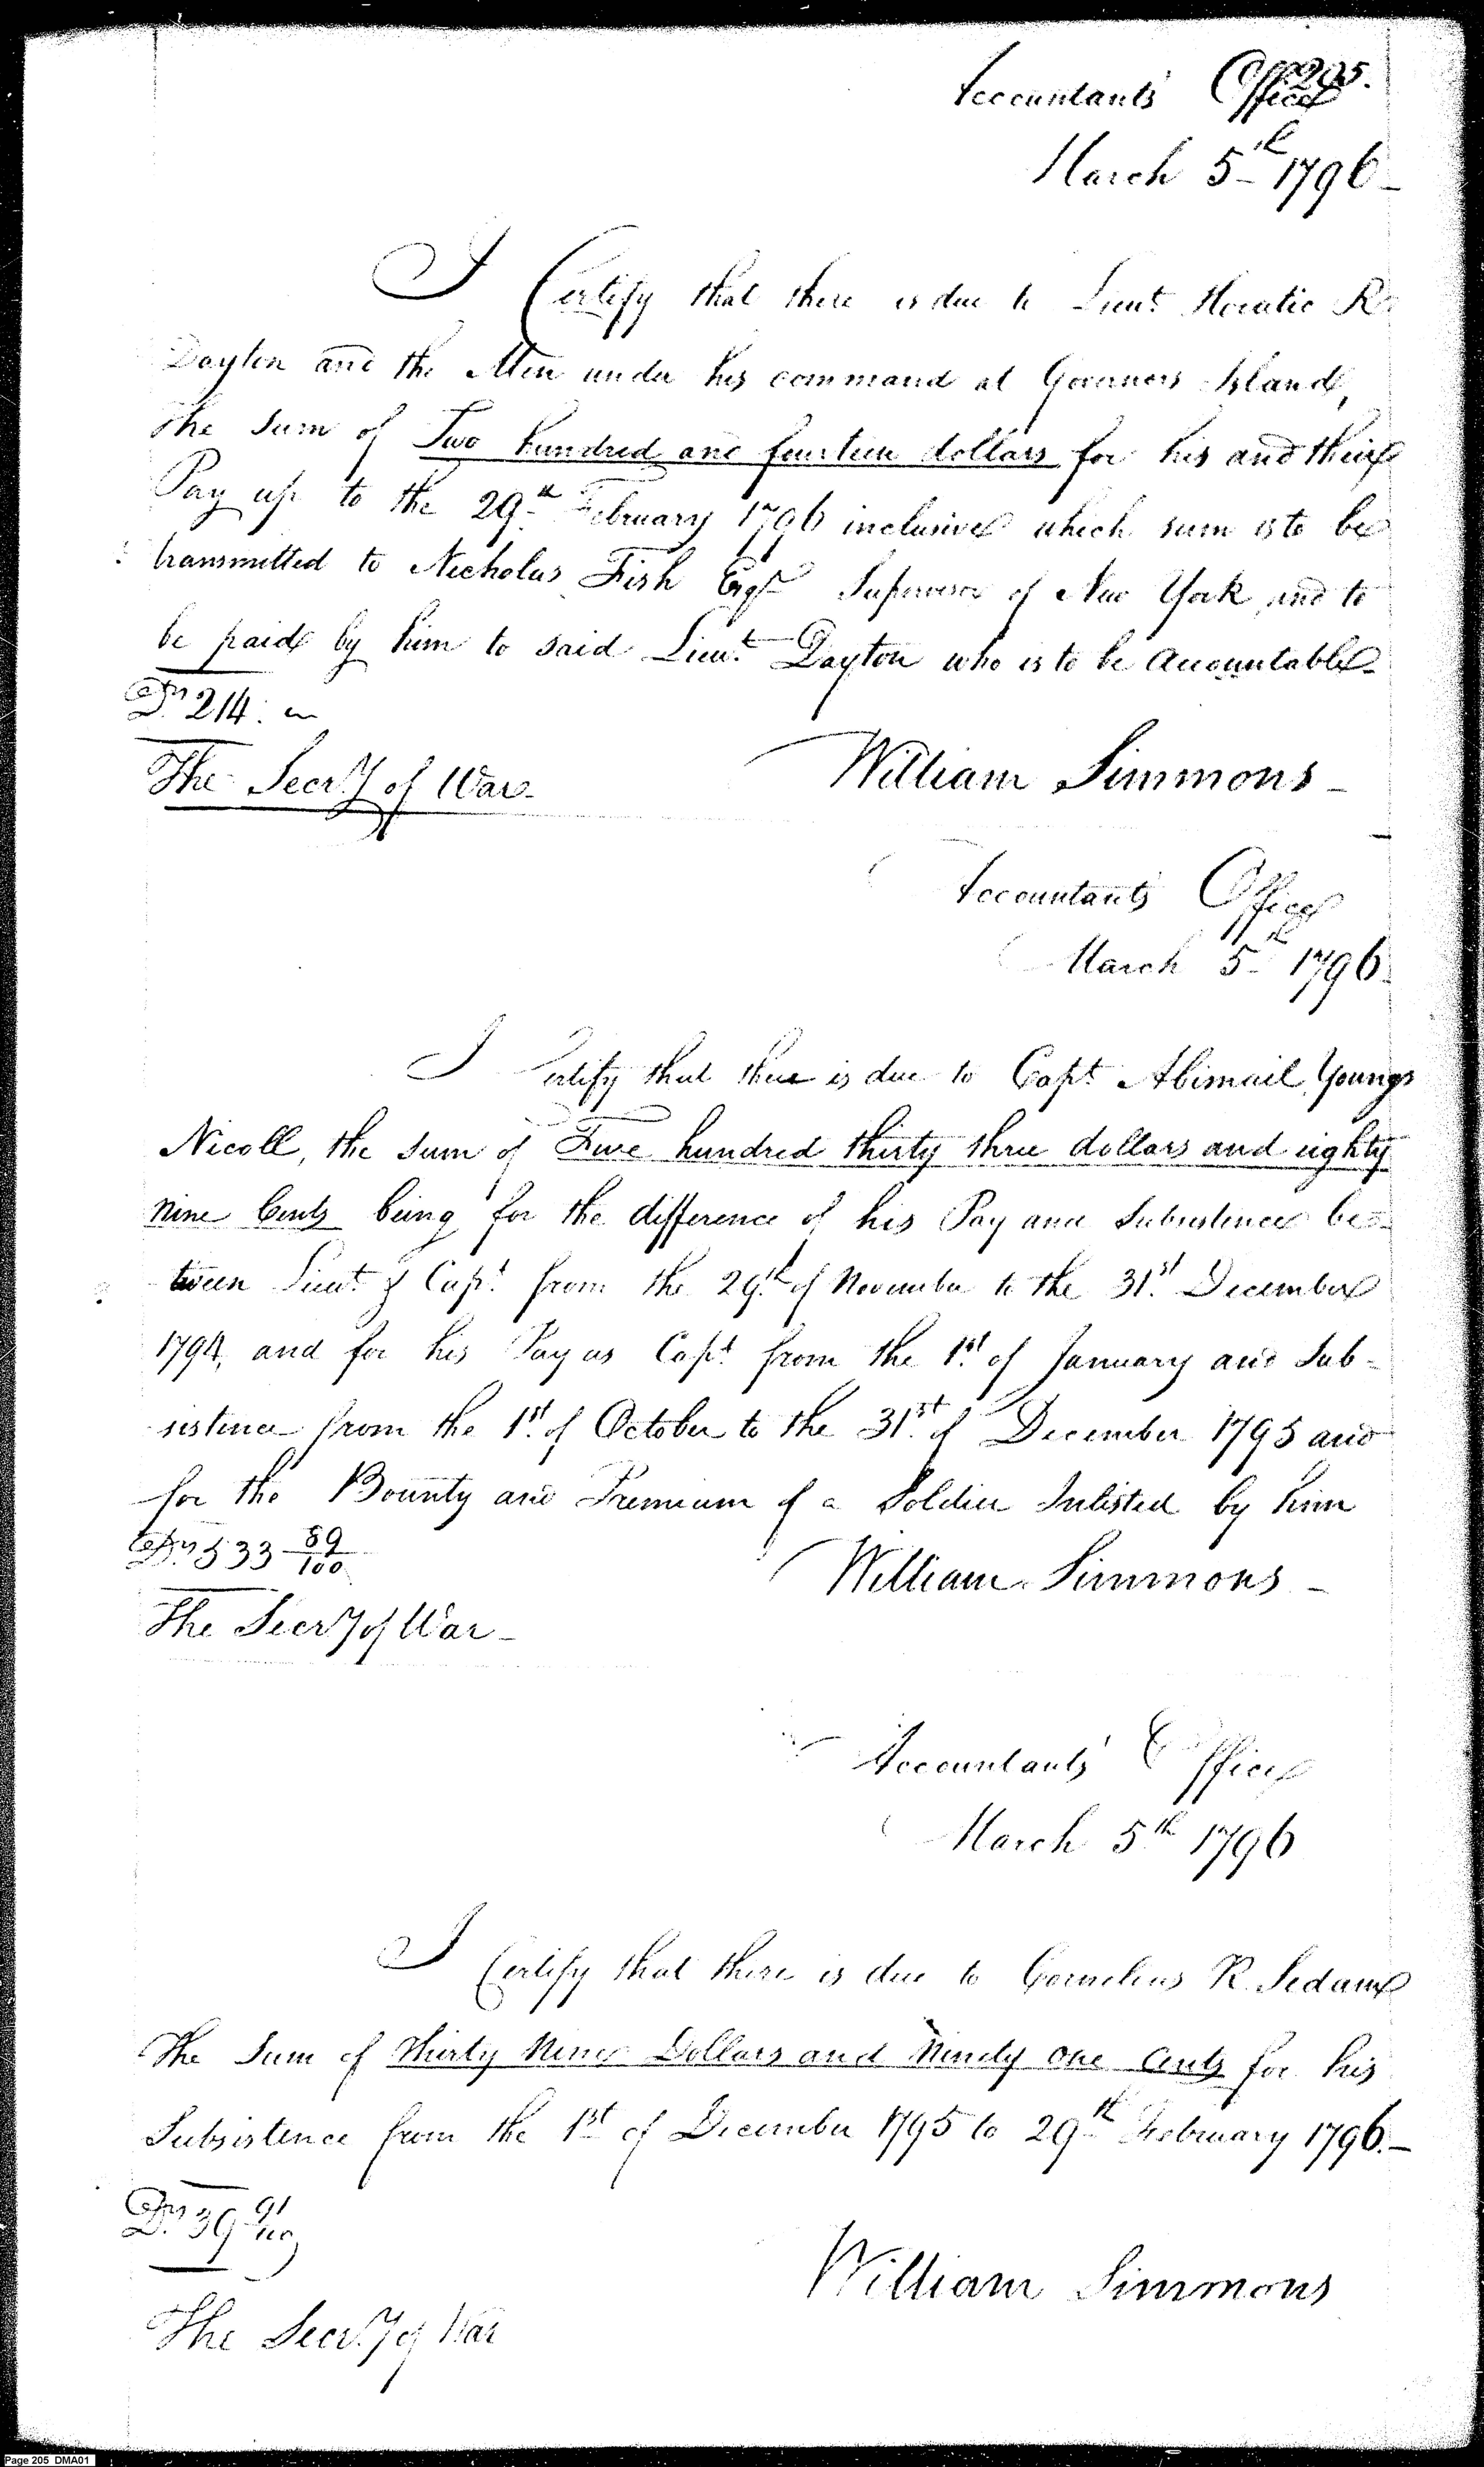 205.
Accountants Office
March 5th 1796
I Certify that there is due to Lieut. Horatio R.
Dayton and the Men under his command at Governors Island,
the Sum of Two hundred and fourteen dollars for his and their
Pay up to the 29th February 1796 inclusive which sum is to be
transmitted to Nicholas Fish Esqr Supervisor of New York and to
be paid by him to said Lieut. Dayton who is to be Accountable
Drs 214.
The Secr'y of War
William Simmons
Accountants Office
March 5th 1796
I Certify that there is due to Capt. Abimail Youngs
Nicoll, the Sum of Five hundred thirty three dollars and eighty
nine Cents being for the difference of his Pay and Subsistence be-
tween Lieut. & Capt. from the 29th of November to the 31st December
1794, and for his Pay as Capt. from the 1st of January and Sub-
sistence from the 1st of October to the 31st of December 1795 and
for the Bounty and Premium of a Soldier Inlisted by him
Drs 533 89/100
William Simmons
The Secr'y of War
Accountants' Office
March 5th 1796
I Certify that there is due to Cornelius R. Sedam
The Sum of Thirty Nine Dollars and Ninety one Cents for his
Subsistence from the 1st of December 1795 to 29th February 1796.
Drs 39 91/100
William Simmons
The Secr'y of War
Page 205 DMA01